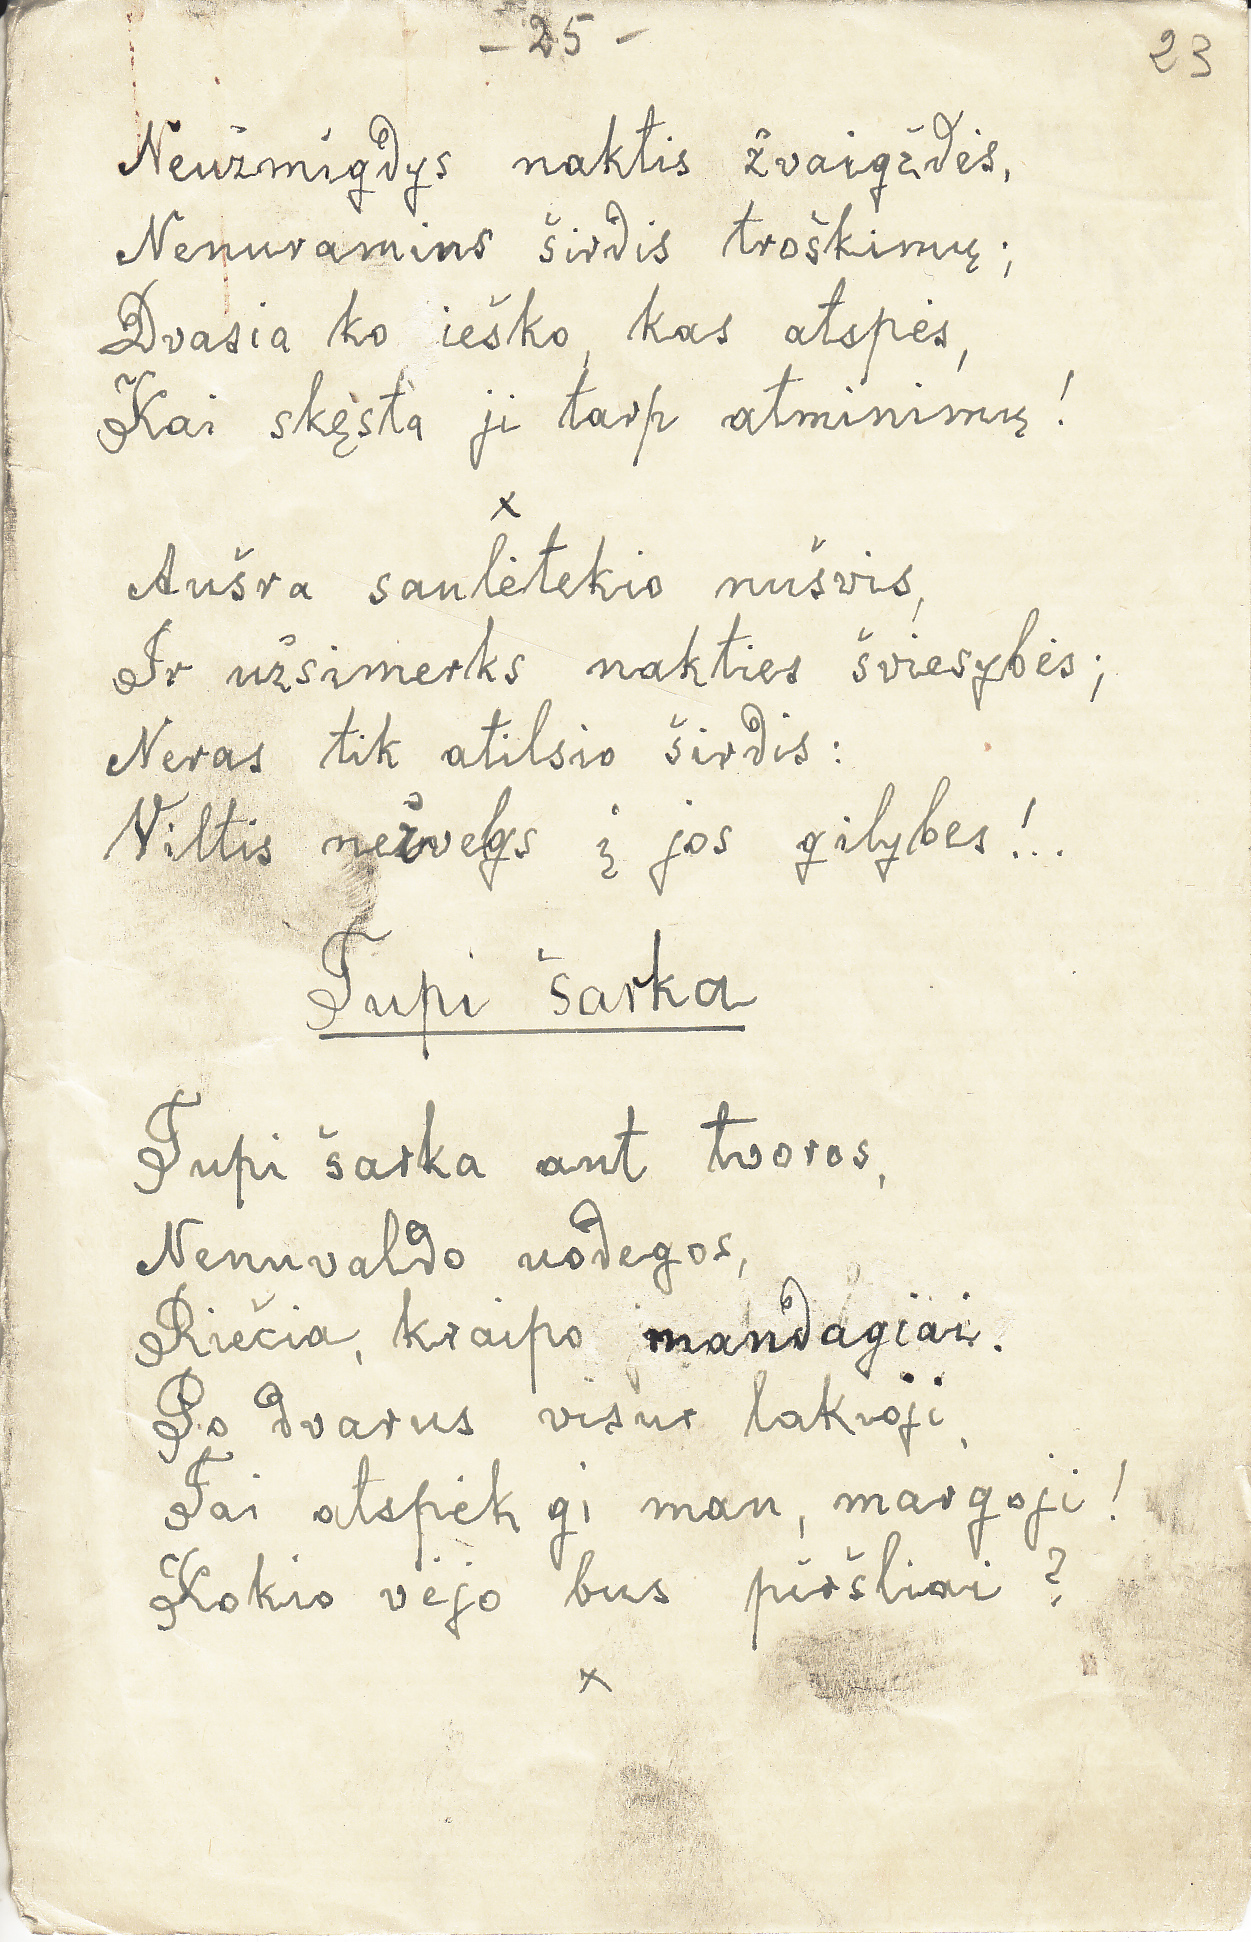 - 25 -
23
Neužmigdys naktis žvaigždės,
Nenuramins širdis troškimų;
Dvasia ko ieško, kas atspės,
Kai skęsta ji tarp atminimų!
x
Aušra saulėtekio nušvis,
Ir užsimerks nakties šviesybės;
Neras tik atilsio širdis:
Viltis nežvelgs į jos gilybes!..
Tupi šarka
Tupi šarka ant tvoros,
Nenuvaldo uodegos,
Riečia, kraipo mandagiai.
Po dvarus visur lakioji,
Tai atspėk gi man, margoji!
Kokio vėjo bus piršliai?
x